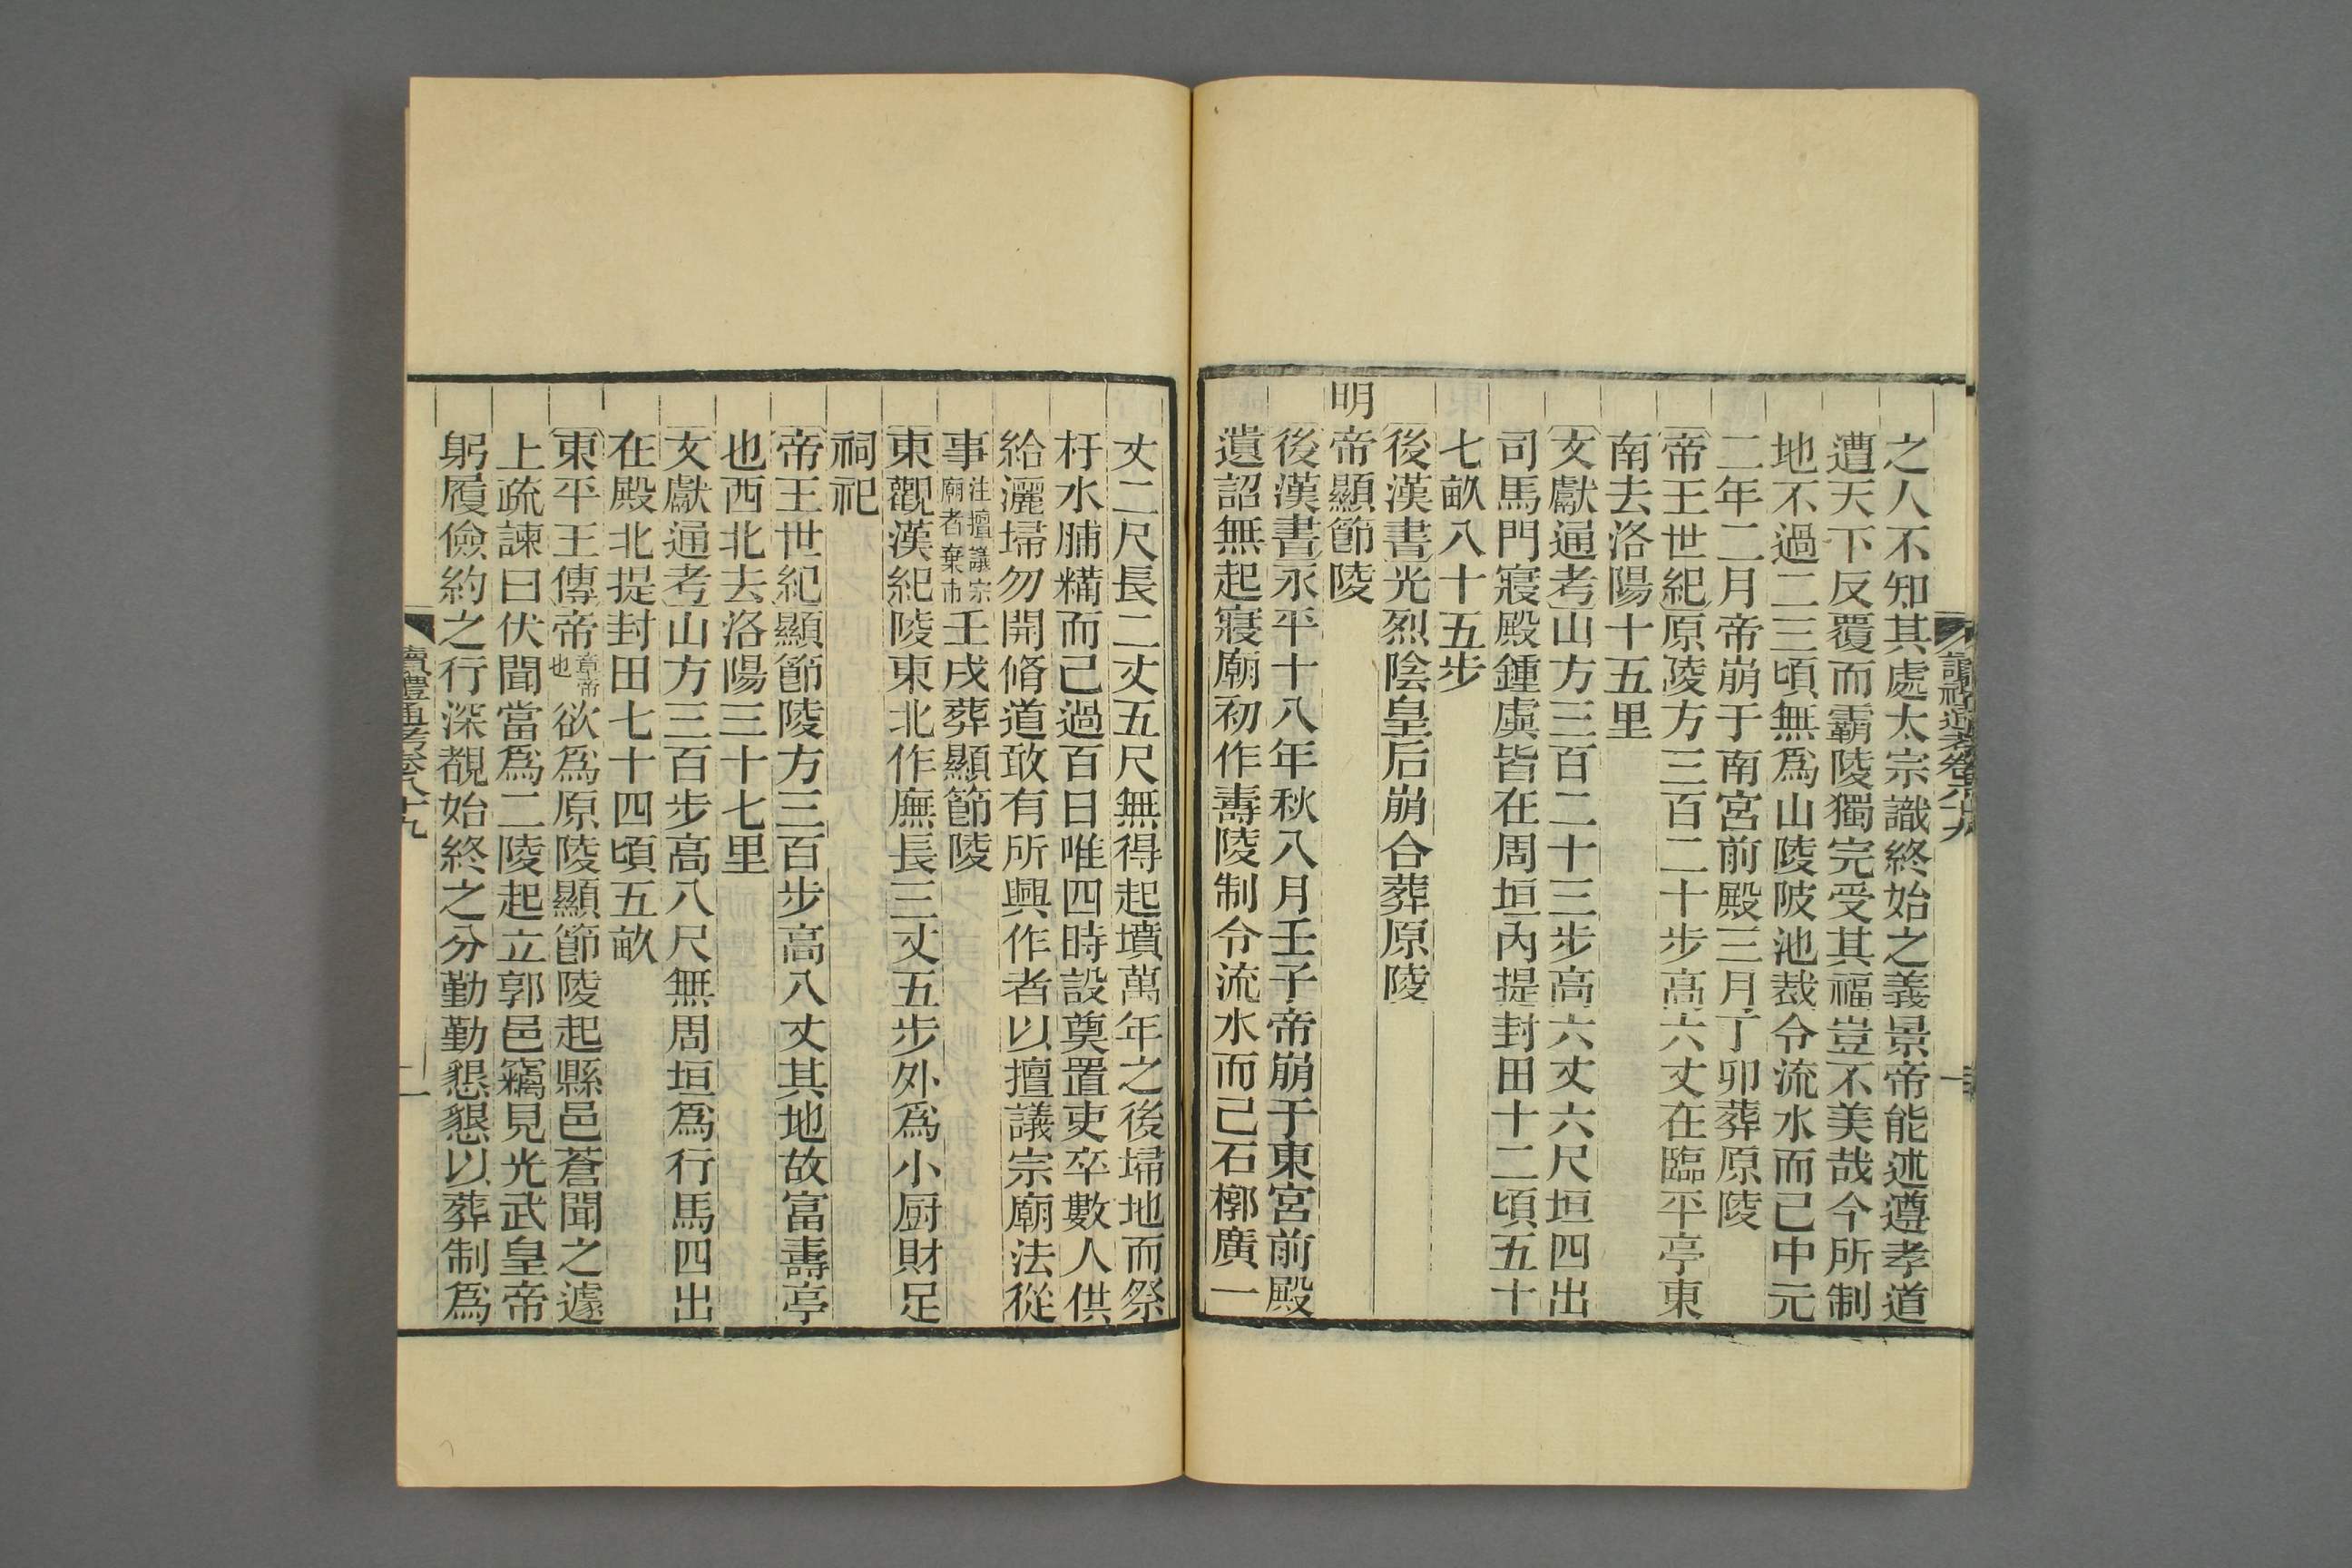 之人不知其處太宗識終始之義景帝能述遵孝道
遭天下反覆而霸陵獨完受其福豈不美哉今所制
地不過二三頃無爲山陵陂池裁令流水而已中元
二年二月帝崩于南宮前殿三月丁卯葬原陵
帝王世紀原陵方三百二十步高六丈在臨平亭東
南去洛陽十五里
文獻通考山方三百二十三步高六丈六尺垣四出
司馬門寢殿鍾虡皆在周垣内提封田十二頃五十
七畝八十五步
後漢書光烈陰皇后崩合葬原陵
明帝顯節陵
後漢書永平十八年秋八月壬子帝崩于東宮前殿
遺詔無起寢廟初作壽陵制令流水而已石槨廣一
丈二尺長二丈五尺無得起墳萬年之後埽地而祭
杅水脯糒而已過百日唯四時設奠置吏卒數人供
給灑埽勿開脩道敢有所興作者以擅議宗廟法從
事注擅議宗廟者棄市壬戌葬顯節陵
東觀漢紀陵東北作廡長三丈五步外爲小厨財足
祠祀
帝王世紀顯節陵方三百步高八丈其地故富壽亭
也西北去洛陽三十七里
文獻通考山方三百步高八尺無周垣爲行馬四出
在殿北提封田七十四頃五畝
東平王傳帝章帝也欲爲原陵顯節陵起縣邑蒼聞之遽
上疏諫曰伏聞當爲二陵起立郭邑竊見光武皇帝
躬履儉約之行深覩始終之分勤勤懇懇以葬制爲
讀禮通考卷八十九
二